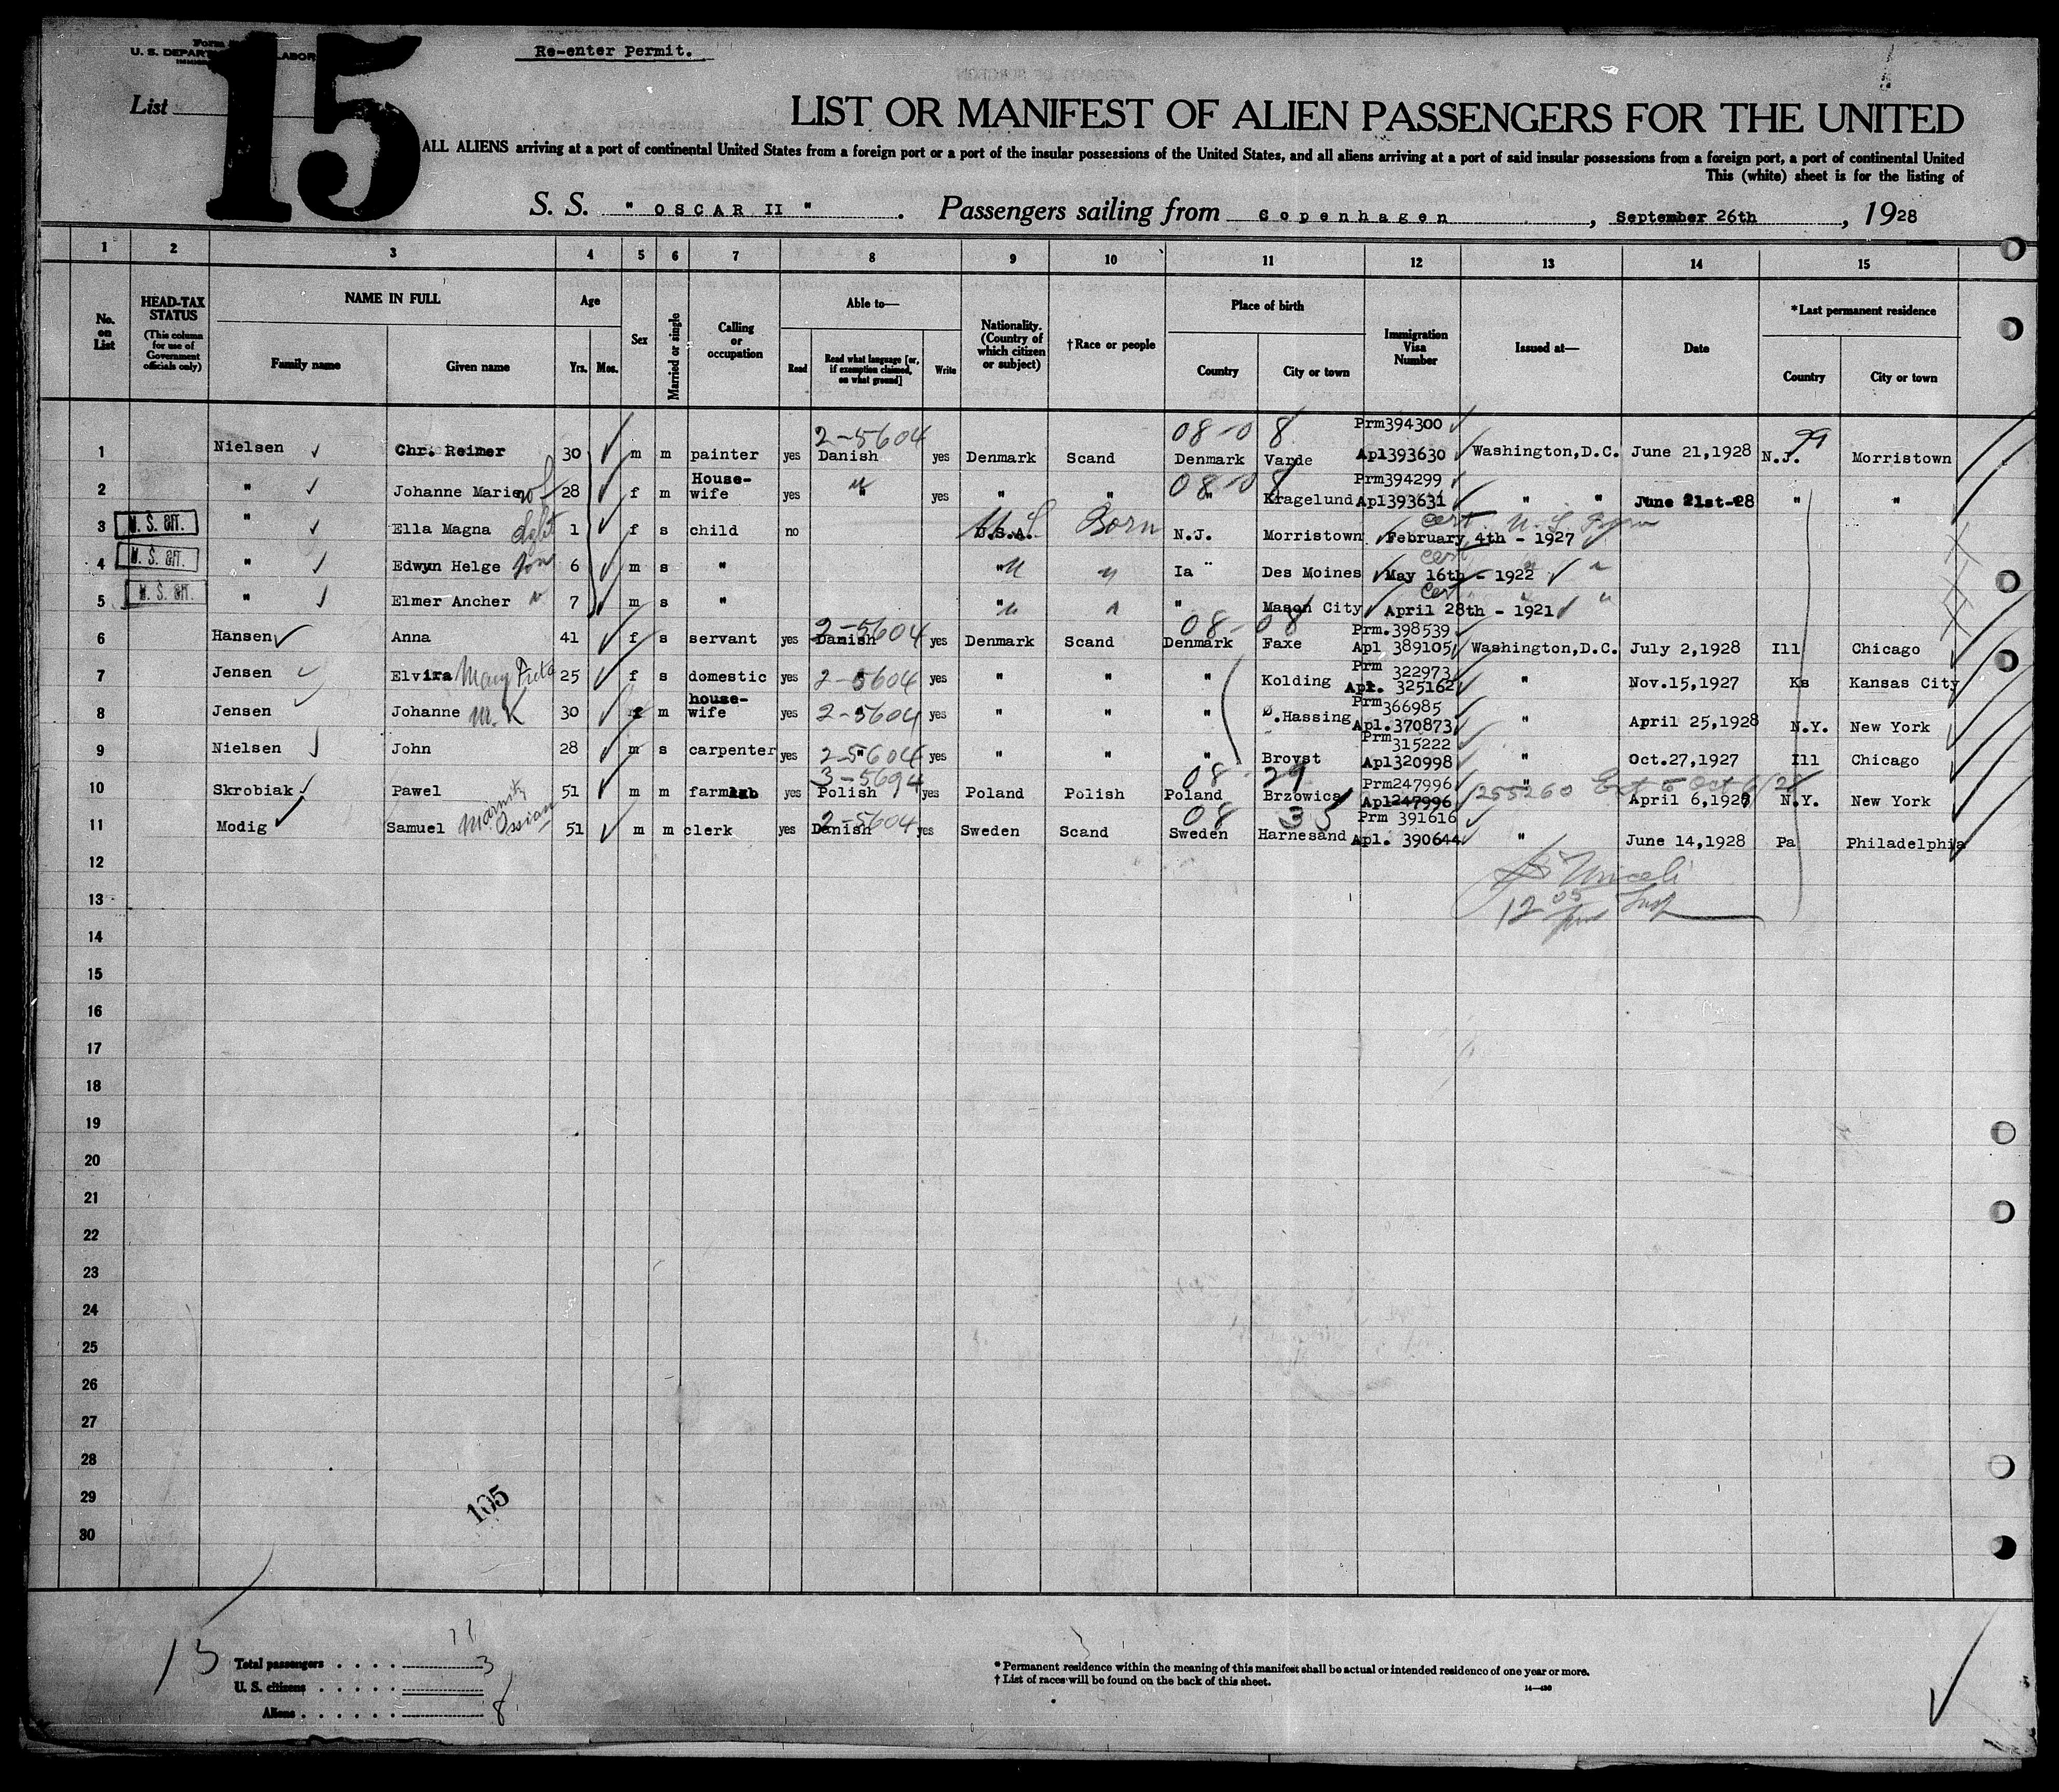 Form
U. S. DEPART LABOR
Re-enter Permit.
List 15
LIST OR MANIFEST OF ALIEN PASSENGERS FOR THE UNITED
ALL ALIENS arriving at a port of continental United States from a foreign port or a port of the insular possessions of the United States, and all aliens arriving at a port of said insular possessions from a foreign port, a port of continental United
This (white) sheet is for the listing of
S. S. " OSCAR II " . Passengers sailing from Copenhagen , September 26th , 1928
1 2 3 4 5 6 7 8 9 10 11 12 13 14 15
No. on List
HEAD-TAX STATUS (This column for use of Government officials only)
NAME IN FULL Family name Given name
Age Yrs. Mos.
Sex
Married or single
Calling or occupation
Able to— Read Read what language [or, if exemption claimed, on what ground] Write
Nationality. (Country of which citizen or subject)
†Race or people
Place of birth Country City or town
Immigration Visa Number
Issued at—
Date
*Last permanent residence Country City or town
1 Nielsen Chr. Reimer 30 m m painter yes 2-5604 Danish yes Denmark Scand 08-08 Denmark Varde Prm394300 Apl393630 Washington,D.C. June 21,1928 N.J. 99 Morristown
2 " Johanne Marie wf 28 f m House-wife yes " yes " " 08-08 " Kragelund Prm394299 Apl393631 " " June 21st-28 " "
3 U. S. CIT. " Ella Magna dght 1 f s child no U.S.A. U.S. Born N.J. Morristown February 4th - 1927 cert. U.S.
4 U. S. CIT. " Edwyn Helge son 6 m s " " " Ia " Des Moines May 16th - 1922 cert " "
5 U. S. CIT. " Elmer Ancher " 7 m s " " " " Mason City April 28th - 1921 cert "
6 Hansen Anna 41 f s servant yes 2-5604 Danish yes Denmark Scand 08-08 Denmark Faxe Prm.398539 Apl 389105 Washington,D.C. July 2,1928 Ill Chicago
7 Jensen Elvira Mary 25 f s domestic yes 2-5604 " yes " " " Kolding Prm 322973 Apl. 325162 " Nov.15,1927 Ks Kansas City
8 Jensen Johanne M.K 30 f m house-wife yes 2-5604 " yes " " " Ø.Hassing Prm 366985 Apl.370873 " April 25,1928 N.Y. New York
9 Nielsen John 28 m s carpenter yes 2-5604 " yes " " " Brovst Prm 315222 Apl320998 " Oct.27,1927 Ill Chicago
10 Skrobiak Pawel 51 m m farmlab yes 3-5694 Polish yes Poland Polish 08-29 Poland Brzowica Prm247996 Apl247996 " 255260 Ext to Oct 6/28 April 6,1928 N.Y. New York
11 Modig Samuel Marnitz Ossian 51 m m clerk yes 2-5604 Danish yes Sweden Scand 08 35 Sweden Harnesand Prm 391616 Apl. 390644 " June 14,1928 Pa Philadelphia
12
13 12 05 Insp
14
15
16
17
18
19
20
21
22
23
24
25
26
27
28
29
30
105
13
11
Total passengers . . . . 3
U. S. citizens . . . . .
Aliens . . . . . . 8
* Permanent residence within the meaning of this manifest shall be actual or intended residence of one year or more.
† List of races will be found on the back of this sheet.
14—430